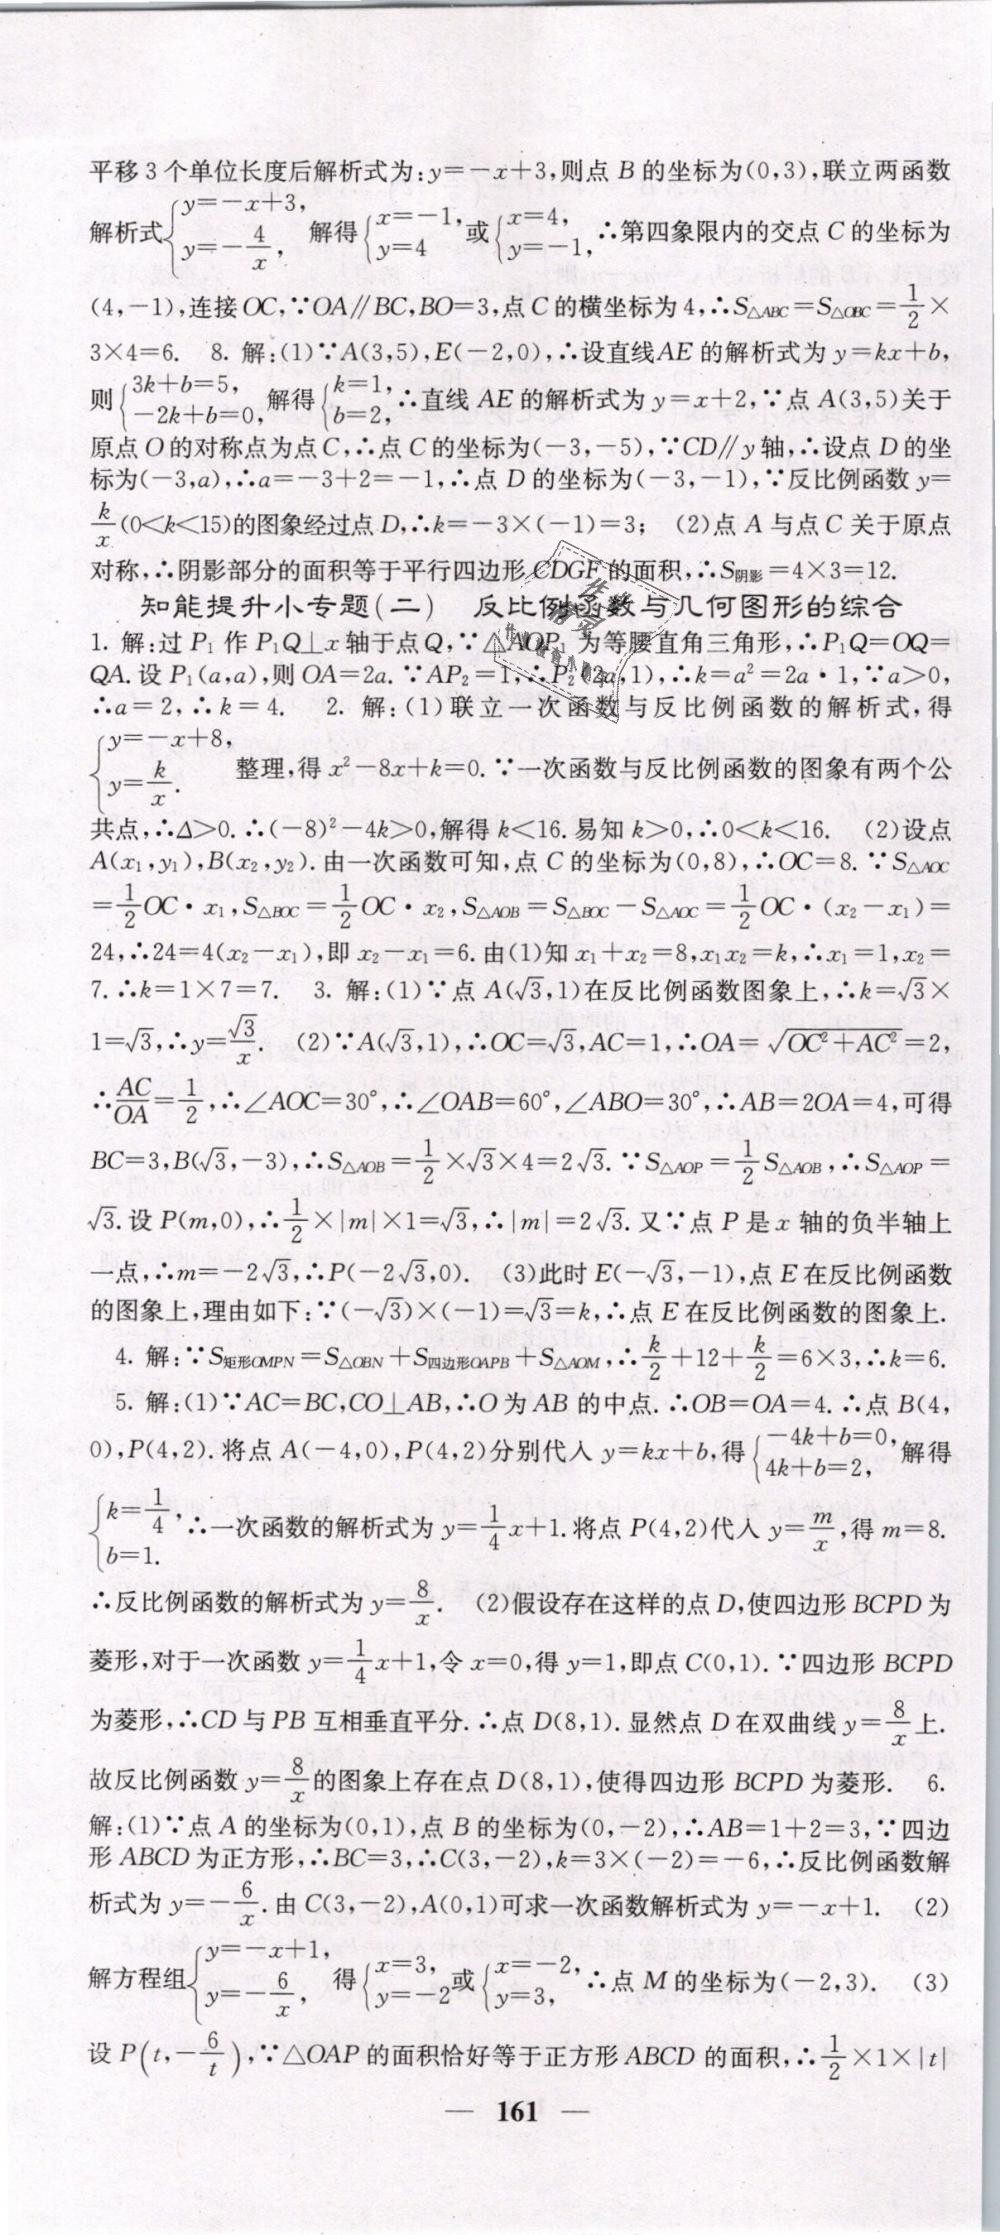 平移3个单位长度后解析式为:y=-x+3,则点B的坐标为(0,3),联立两函数
解析式{y=-x+3, y=-4/x, 解得{x=-1, y=4 或{x=4, y=-1, ∴第四象限内的交点C的坐标为
(4,-1),连接OC,∵OA∥BC,BO=3,点C的横坐标为4,∴S△ABC=S△OBC=1/2×
3×4=6. 8. 解:(1)∵A(3,5),E(-2,0),∴设直线AE的解析式为y=kx+b,
则{3k+b=5, -2k+b=0, 解得{k=1, b=2, ∴直线AE的解析式为y=x+2,∵点A(3,5)关于
原点O的对称点为点C,∴点C的坐标为(-3,-5),∵CD∥y轴,∴设点D的坐
标为(-3,a),∴a=-3+2=-1,∴点D的坐标为(-3,-1),∵反比例函数y=
k/x(0<k<15)的图象经过点D,∴k=-3×(-1)=3; (2)点A与点C关于原点
对称,∴阴影部分的面积等于平行四边形CDGF的面积,∴S阴影=4×3=12.
知能提升小专题(二) 反比例函数与几何图形的综合
1. 解:过P₁作P₁Q⊥x轴于点Q,∵△AOP₁为等腰直角三角形,∴P₁Q=OQ=
QA.设P₁(a,a),则OA=2a.∵AP₂=1,∴P₂(2a,1),∴k=a²=2a·1,∵a>0,
∴a=2,∴k=4. 2. 解:(1)联立一次函数与反比例函数的解析式,得
{y=-x+8, y=k/x. 整理,得x²-8x+k=0.∵一次函数与反比例函数的图象有两个公
共点,∴Δ>0.∴(-8)²-4k>0,解得k<16.易知k>0,∴0<k<16. (2)设点
A(x₁,y₁),B(x₂,y₂).由一次函数可知,点C的坐标为(0,8),∴OC=8.∵S△AOC
=1/2OC·x₁,S△BOC=1/2OC·x₂,S△AOB=S△BOC-S△AOC=1/2OC·(x₂-x₁)=
24,∴24=4(x₂-x₁),即x₂-x₁=6.由(1)知x₁+x₂=8,x₁x₂=k,∴x₁=1,x₂=
7.∴k=1×7=7. 3. 解:(1)∵点A(√3,1)在反比例函数图象上,∴k=√3×
1=√3,∴y=√3/x. (2)∵A(√3,1),∴OC=√3,AC=1,∴OA=√(OC²+AC²)=2,
∴AC/OA=1/2,∴∠AOC=30°,∴∠OAB=60°,∠ABO=30°,∴AB=2OA=4,可得
BC=3,B(√3,-3),∴S△AOB=1/2×√3×4=2√3.∵S△AOP=1/2S△AOB,∴S△AOP=
√3.设P(m,0),∴1/2×|m|×1=√3,∴|m|=2√3.又∵点P是x轴的负半轴上
一点,∴m=-2√3,∴P(-2√3,0). (3)此时E(-√3,-1),点E在反比例函数
的图象上,理由如下:∵(-√3)×(-1)=√3=k,∴点E在反比例函数的图象上.
4. 解:∵S矩形OMPN=S△OBN+S四边形OAPB+S△AOM,∴k/2+12+k/2=6×3,∴k=6.
5. 解:(1)∵AC=BC,CO⊥AB,∴O为AB的中点.∴OB=OA=4.∴点B(4,
0),P(4,2).将点A(-4,0),P(4,2)分别代入y=kx+b,得{-4k+b=0, 4k+b=2, 解得
{k=1/4, b=1. ∴一次函数的解析式为y=1/4x+1.将点P(4,2)代入y=m/x,得m=8.
∴反比例函数的解析式为y=8/x. (2)假设存在这样的点D,使四边形BCPD为
菱形,对于一次函数y=1/4x+1,令x=0,得y=1,即点C(0,1).∵四边形BCPD
为菱形,∴CD与PB互相垂直平分.∴点D(8,1).显然点D在双曲线y=8/x上.
故反比例函数y=8/x的图象上存在点D(8,1),使得四边形BCPD为菱形. 6.
解:(1)∵点A的坐标为(0,1),点B的坐标为(0,-2),∴AB=1+2=3,∵四边
形ABCD为正方形,∴BC=3,∴C(3,-2),k=3×(-2)=-6,∴反比例函数解
析式为y=-6/x.由C(3,-2),A(0,1)可求一次函数解析式为y=-x+1. (2)
解方程组{y=-x+1, y=-6/x, 得{x=3, y=-2 或{x=-2, y=3, ∴点M的坐标为(-2,3). (3)
设P(t,-6/t),∵△OAP的面积恰好等于正方形ABCD的面积,∴1/2×1×|t|
— 161 —